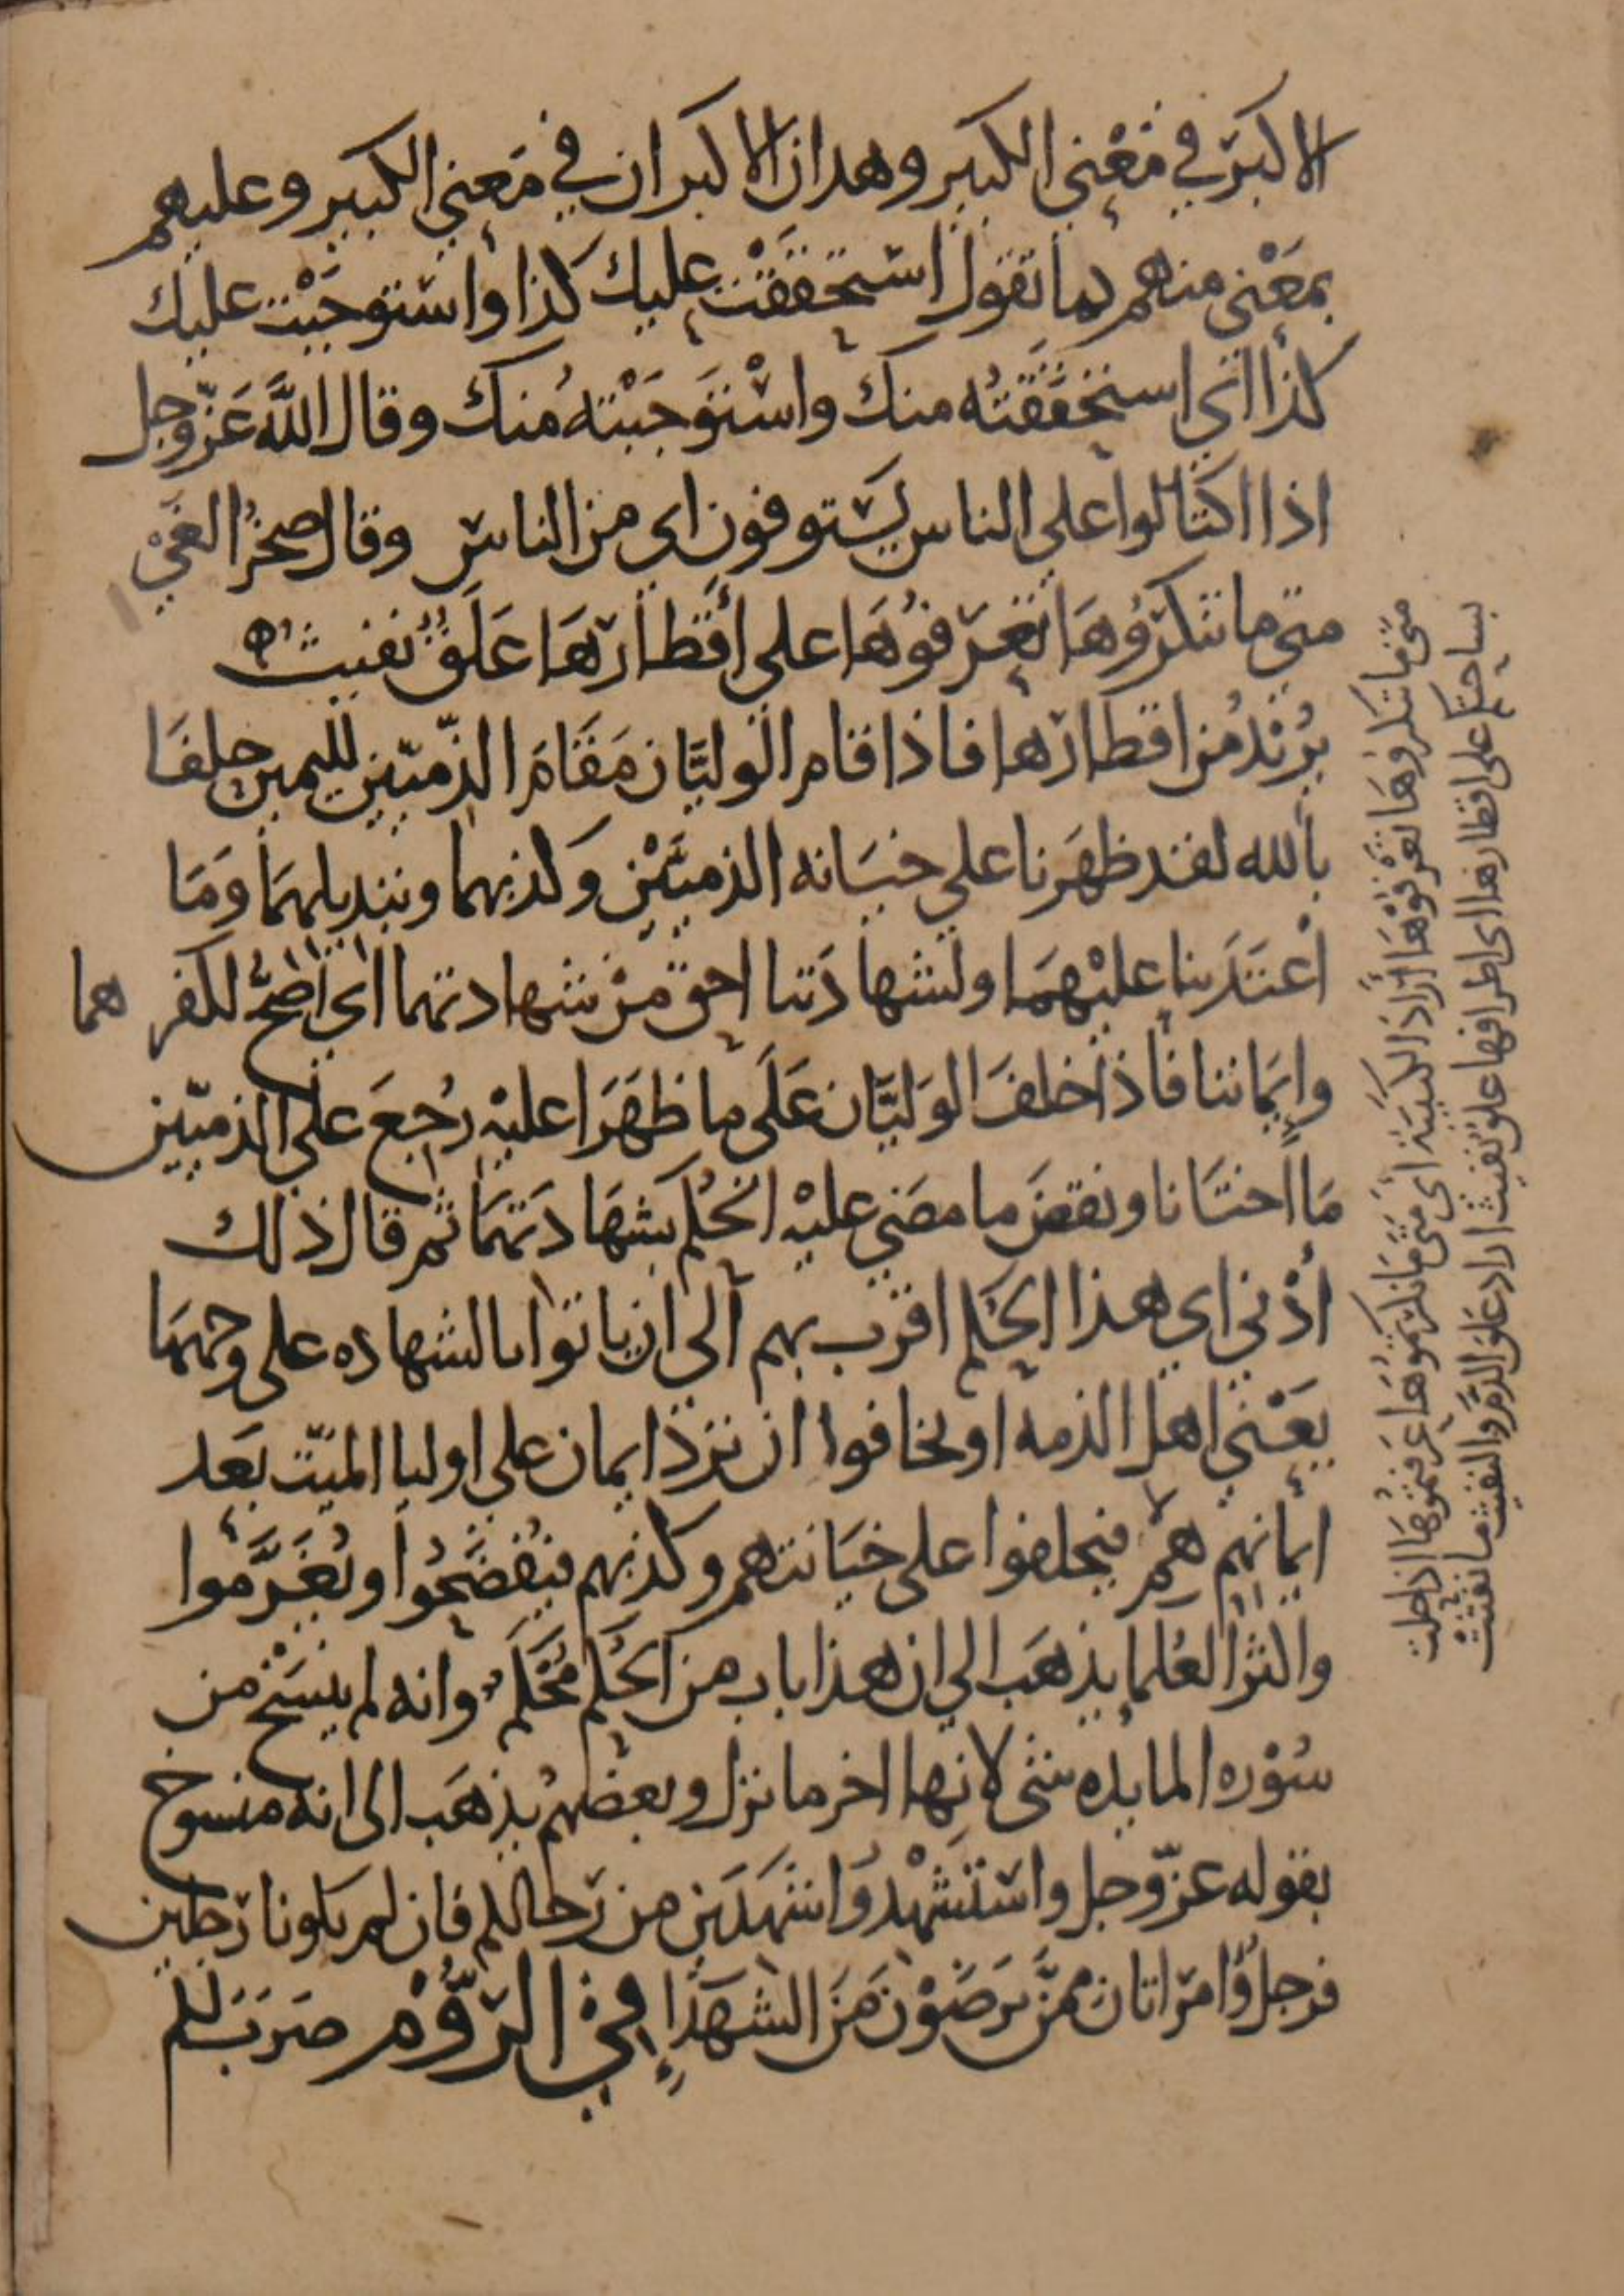 الاكبر في مَعْنى الكبير وهذان الاكبران في مَعنى الكبير وعليهم
بمَعْنى منهم كما تقول استحقَقْت عليك كذا واستوجَبْت عليك
كذا اي استحقَقتُه منك واسْتوَجَبْته مُنك وقال اللَّه عَزّ وجل
اذا اكتالوا على الناس يَستوفون اي من الناس وقال صخرُ الغيّ
متى ما تنكرُوهَا تَعرَفُوهَا على أقطارهَا عَلَقٌ نفيثُ ه
يُرْيدُ من اقطارها فاذا قام الوليَّان مَقَامَ الذّميّين لليمين حلفَا
بالله لقد ظهَرنا على خيَانه الذميّيْن وكذبهما وتبديلهمَا ومَا
اعْتَدَينا عليْهمَا ولشهادَتنا احق مْن شهادتهما اي أصَحُّ لكفرهما
وايَماننا فاذا حلفَ الوَليَّان عَلَى ما ظهَرَا عليْه رُجعَ على الذميّين
مَا اختَانا ونقضَ ما مضَى عليْه الحُكم بشهَادَتهمَا ثم قال ذلك
أدْنى اي هذا الحُكم اقرب بهم الى ان ياتوا بالشهاده على وجههَا
يعَنى اهل الذمه او يخافوا ان تردّ ايمان على اوليا الميّت بَعد
ايمَانهم هم فيحلفوا على خيَانتهم وكذبهم فيُفضَحُوا ويُغَرَّموا
واكثر العُلما يذهَب الي ان هذا باب من الحُكم مُحْكَم وانه لم يُنسَخ من
سُوْره المايده شى لانها اخر ما نزل وبعضهم يذهَب الى انه منسوخ
بقوله عزّ وجل واسْتشْهدُوا شهيدَين من رَجالكم فان لم يكونا رَجلين
فرجلٌ وامرَاتان ممنَّ ترَضَوْن مَن الشهَدَاءِ وفى الرُّوم ضرَبَ لكم
متى ما تنكرُوهَا تعْرفُوْهَا أرَاد الكتيبَة اى متى مَا نكرتموُهَا عَرَفتمُوهَا اذا حلت
بساحتكم على اقطارها اى اطرافها علقٌ نفيث اراد عَلَقَ الدّم والنفيث ما نفثتْ